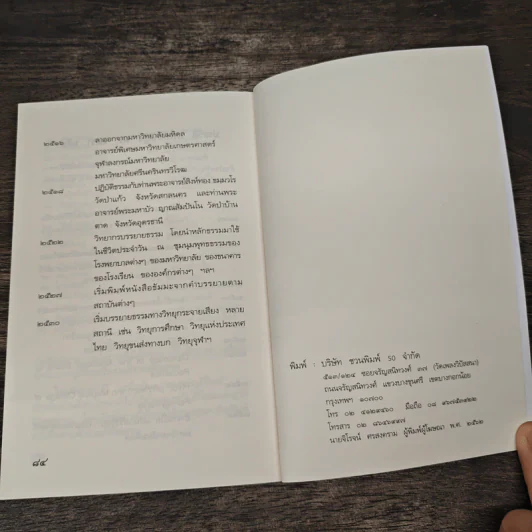 ๒๕๑๖ ลาออกจากมหาวิทยาลัยมหิดล
อาจารย์พิเศษมหาวิทยาลัยเกษตรศาสตร์
จุฬาลงกรณ์มหาวิทยาลัย
มหาวิทยาลัยศรีนครินทรวิโรฒ
๒๕๑๘ ปฏิบัติธรรมกับท่านพระอาจารย์สิงห์ทอง ธมฺมวโร
วัดป่าแก้ว จังหวัดสกลนคร และท่านพระ
อาจารย์พระมหาบัว ญาณสัมปันโน วัดป่าบ้าน
ตาด จังหวัดอุดรธานี
๒๕๒๒ วิทยากรบรรยายธรรม โดยนำหลักธรรมมาใช้
ในชีวิตประจำวัน ณ ชุมนุมพุทธธรรมของ
โรงพยาบาลต่างๆ ของมหาวิทยาลัย ของธนาคาร
ของโรงเรียน ขององค์กรต่างๆ ฯลฯ
๒๕๒๗ เริ่มพิมพ์หนังสือธัมมะจากคำบรรยายตาม
สถาบันต่างๆ
๒๕๓๐ เริ่มบรรยายธรรมทางวิทยุกระจายเสียง หลาย
สถานี เช่น วิทยุการศึกษา วิทยุแห่งประเทศ
ไทย วิทยุขนส่งทางบก วิทยุจุฬาฯ
๘๔
พิมพ์ : บริษัท ชวนพิมพ์ 50 จำกัด
๕๑๓/๑๒๔ ซอยจรัญสนิทวงศ์ ๓๗ (วัดเพลงวิปัสสนา)
ถนนจรัญสนิทวงศ์ แขวงบางขุนศรี เขตบางกอกน้อย
กรุงเทพฯ ๑๐๗๐๐
โทร ๐๒ มือถือ ๐๘
โทรสาร ๐๒
นายจิโรจน์ ศรสงคราม ผู้พิมพ์ผู้โฆษณา พ.ศ.